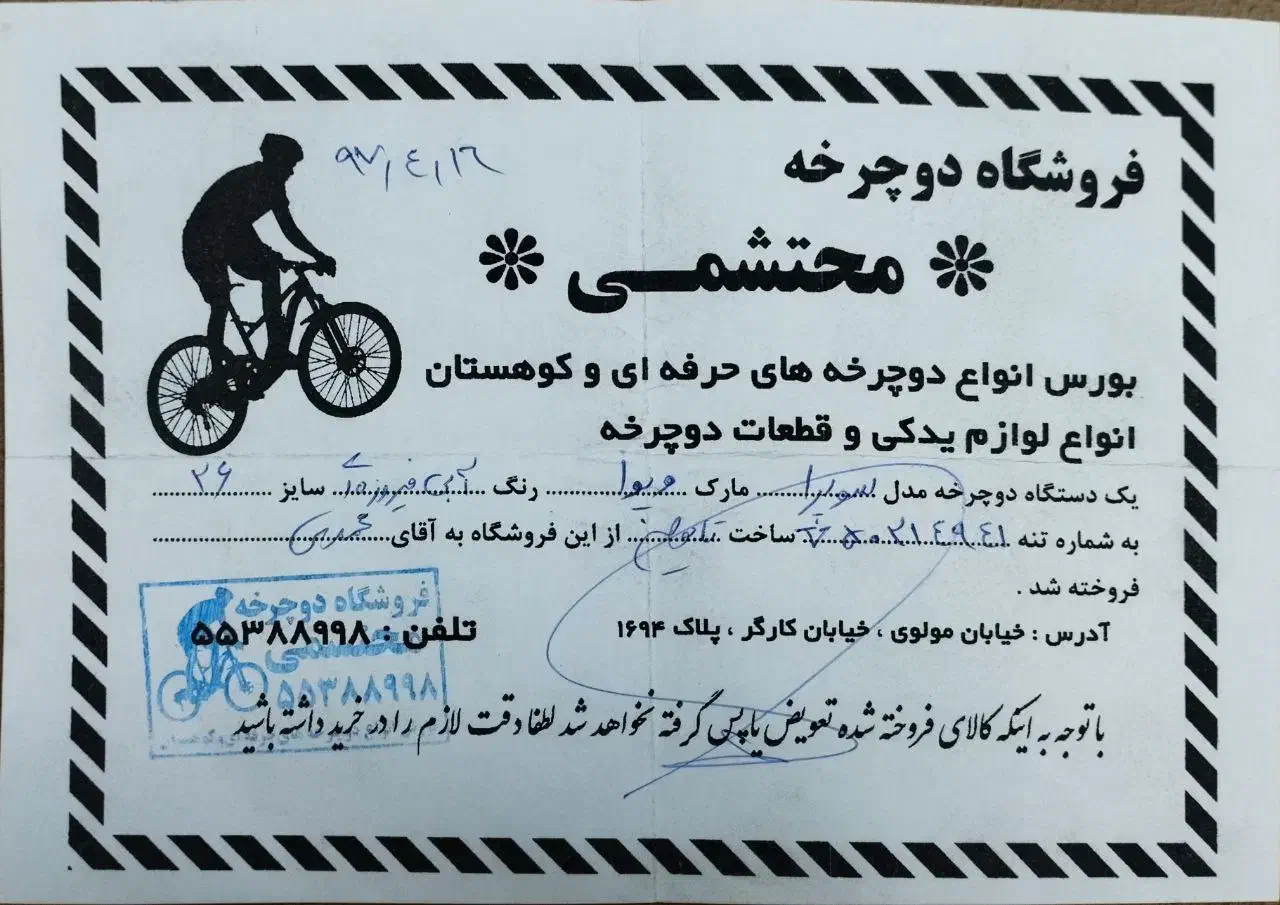 ۹۷/۴/۱۶
فروشگاه دوچرخه
محتشمی
بورس انواع دوچرخه های حرفه ای و کوهستان
انواع لوازم یدکی و قطعات دوچرخه
یک دستگاه دوچرخه مدل سوپرا مارک ویوا رنگ آبی فیروزه ای سایز ۲۶
به شماره تنه ساخت تایوان از این فروشگاه به آقای محمدی
فروخته شد .
آدرس : خیابان مولوی ، خیابان کارگر ، پلاک ۱۶۹۴ تلفن : ۵۵۳۸۸۹۹۸
فروشگاه دوچرخه
محتشمی
۵۵۳۸۸۹۹۸
با توجه به اینکه کالای فروخته شده تعویض یا پس گرفته نخواهد شد لطفا دقت لازم را در خرید داشته باشید